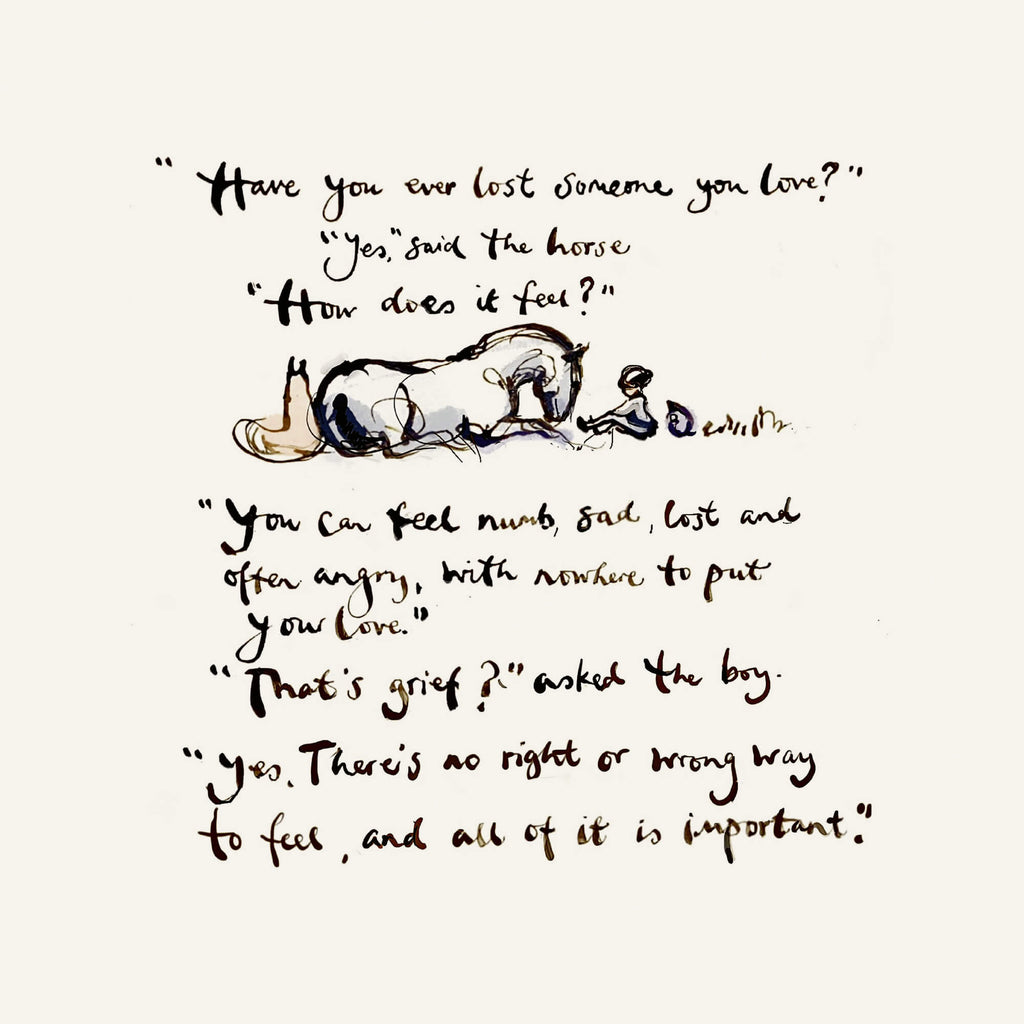 " Have you ever lost someone you love?"
"Yes," said the horse
"How does it feel?"
"You can feel numb, sad, lost and
often angry, with nowhere to put
your love."
"That's grief?" asked the boy.
"Yes. There's no right or wrong way
to feel, and all of it is important."